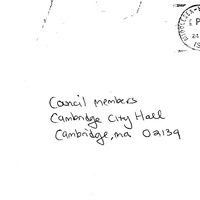 Council Members
Cambridge City Hall
Cambridge, ma 02139